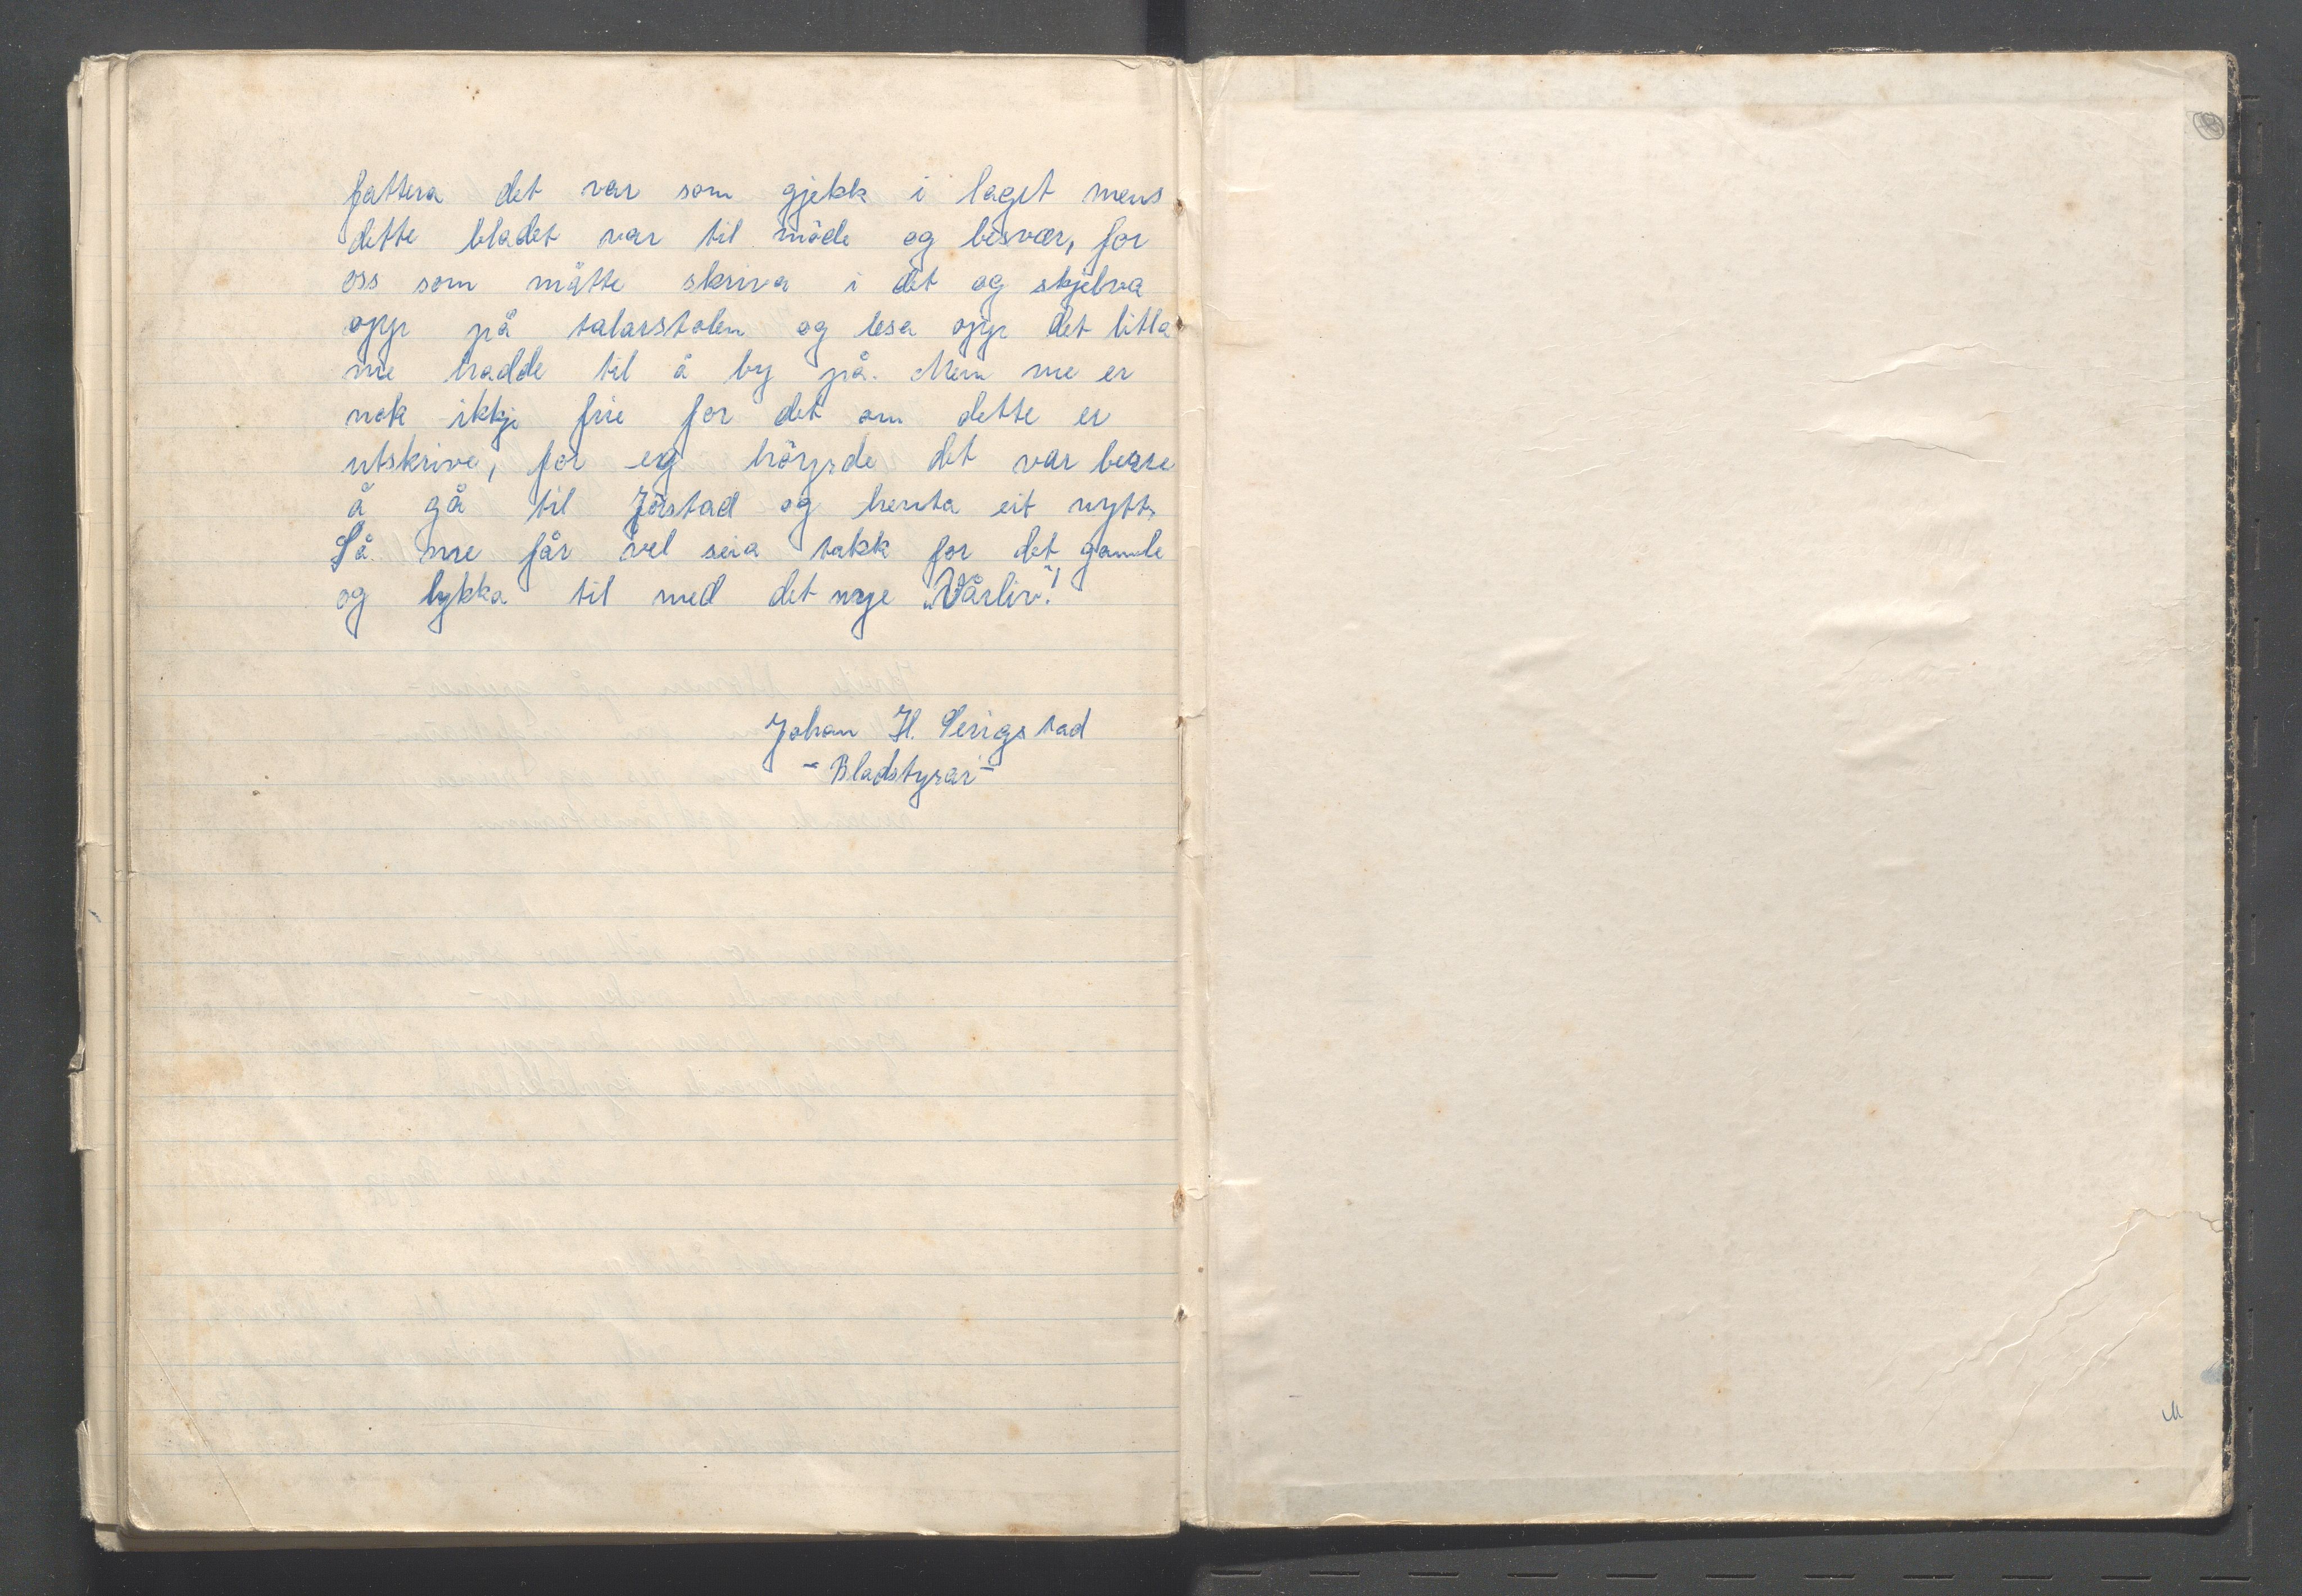 fattera det var som gjekk i laget mens
dette bladet var til möde og besvær, for
oss som måtte skriva i det og skjelva
opp på talarstolen og lesa opp det litla
me hadde til å by på. Men me er
nok ikkje frie for det om dette er
utskrive, for eg höyrde det var berre
å gå til Jöstad og henta eit nytt.
Så me får vel seia takk for det gamle
og lykka til med det nye „Vårliv"!
Johan H. Serigstad
- Bladstyrar -